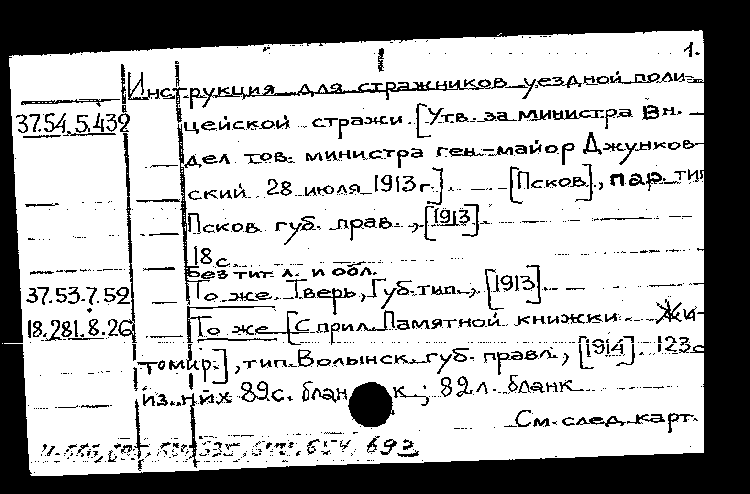 1.
Инструкция для стражников уездной поли-
37.54.5.432 цейской стражи. [Утв. за министра Вн.
дел тов. министра ген.-майор Джунков-
ский 28 июля 1913 г.]. [Псков], пар. тип
Псков. губ. прав., [1913].
18 с.
Без тит. л. и обл.
37.53.7.52 То же. Тверь, Губ. тип., [1913].
18.281.8.26 То же [С прил. Памятной книжки. Жи-
томир.], тип. Волынск. губ. правл., [1914]. 123 с
из них 89 с. бланк.; 82 л. бланк
См. след. карт.
654, 693